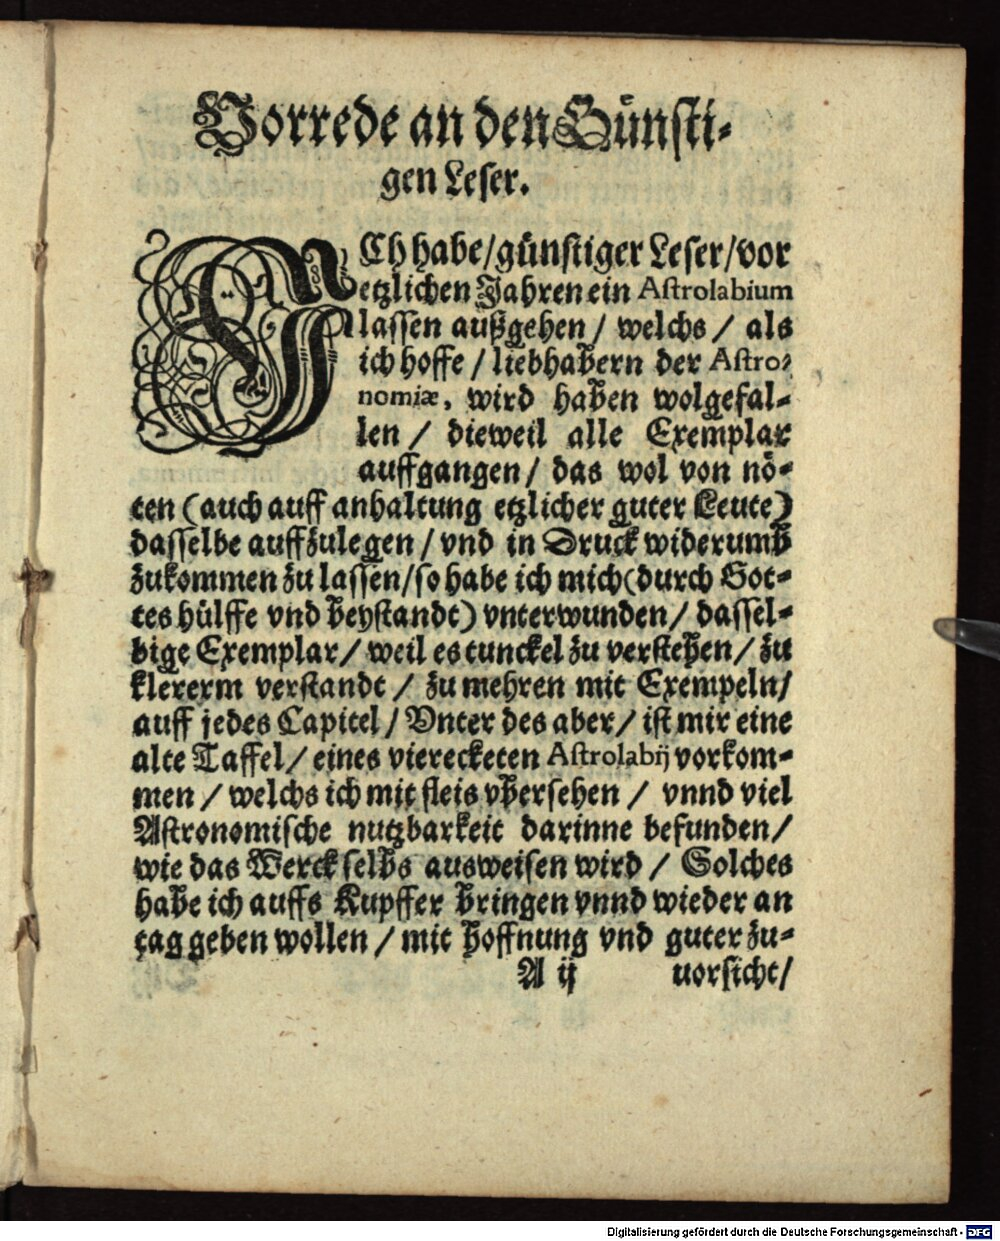 Vorrede an den Günsti-
gen Leser.
ICh habe/günstiger Leser/vor
etzlichen Jahren ein Astrolabium
lassen außgehen / welchs / als
ich hoffe / liebhabern der Astro-
nomiæ, wird haben wolgefal-
len / dieweil alle Exemplar
auffgangen / das wol von nö-
ten (auch auff anhaltung etzlicher guter Leute)
dasselbe auffzulegen / vnd in Druck widerumb
zukommen zu lassen/so habe ich mich (durch Got-
tes hülffe vnd beystandt) vnterwunden / dassel-
bige Exemplar / weil es tunckel zu verstehen / zu
klererm verstandt / zu mehren mit Exempeln/
auff jedes Capitel / Vnter des aber / ist mir eine
alte Taffel / eines vierecketen Astrolabij vorkom-
men / welchs ich mit fleis vbersehen / vnnd viel
Astronomische nutzbarkeit darinne befunden /
wie das Werck selbs ausweisen wird / Solches
habe ich auffs Kupffer bringen vnnd wieder an
tag geben wollen / mit hoffnung vnd guter zu-
A ij uorsicht/
Digitalisierung gefördert durch die Deutsche Forschungsgemeinschaft - DFG